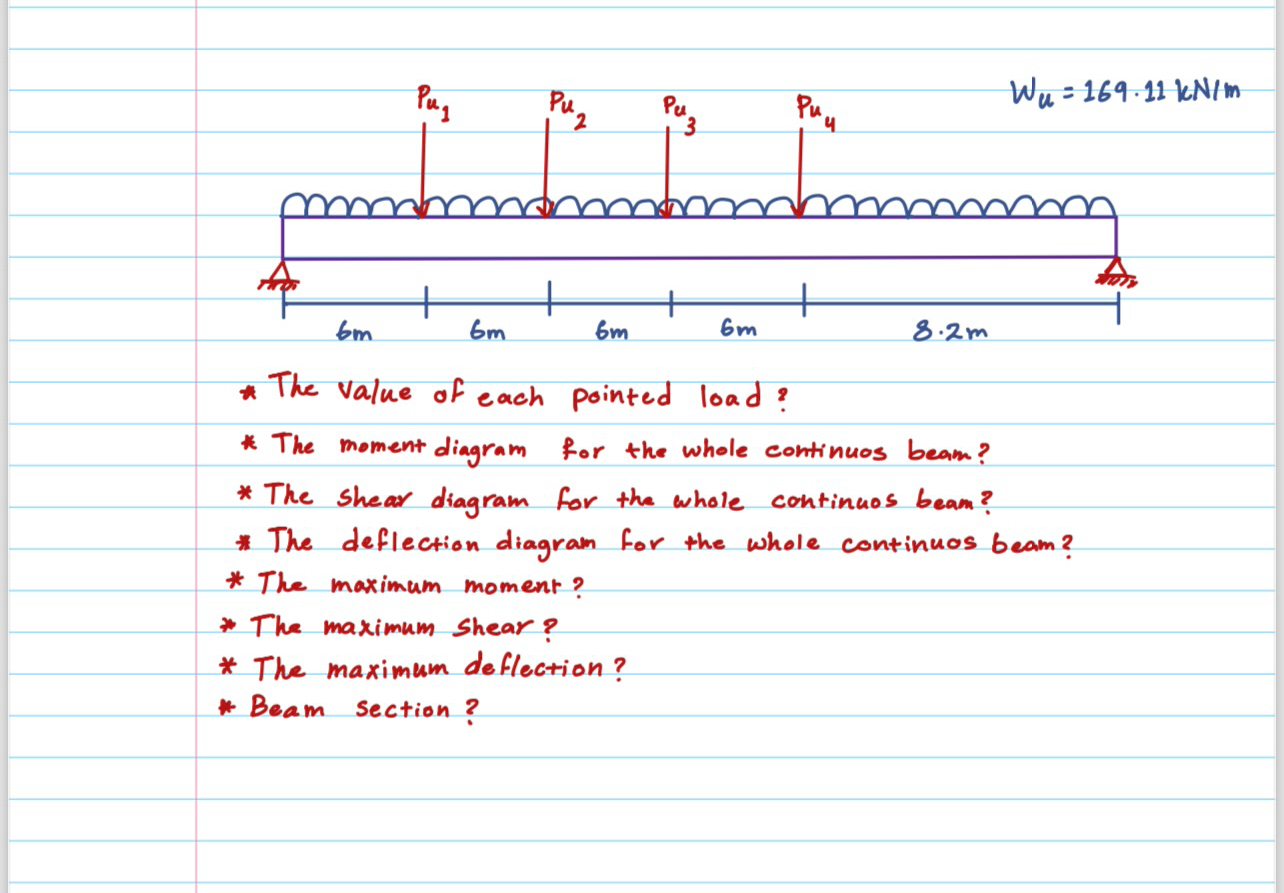 Pu1 Pu2 Pu3 Pu4 Wu = 169.11 kN/m
6m 6m 6m 6m 8.2m
* The value of each pointed load?
* The moment diagram for the whole continuos beam?
* The shear diagram for the whole continuos beam?
* The deflection diagram for the whole continuos beam?
* The maximum moment?
* The maximum shear?
* The maximum deflection?
* Beam section?